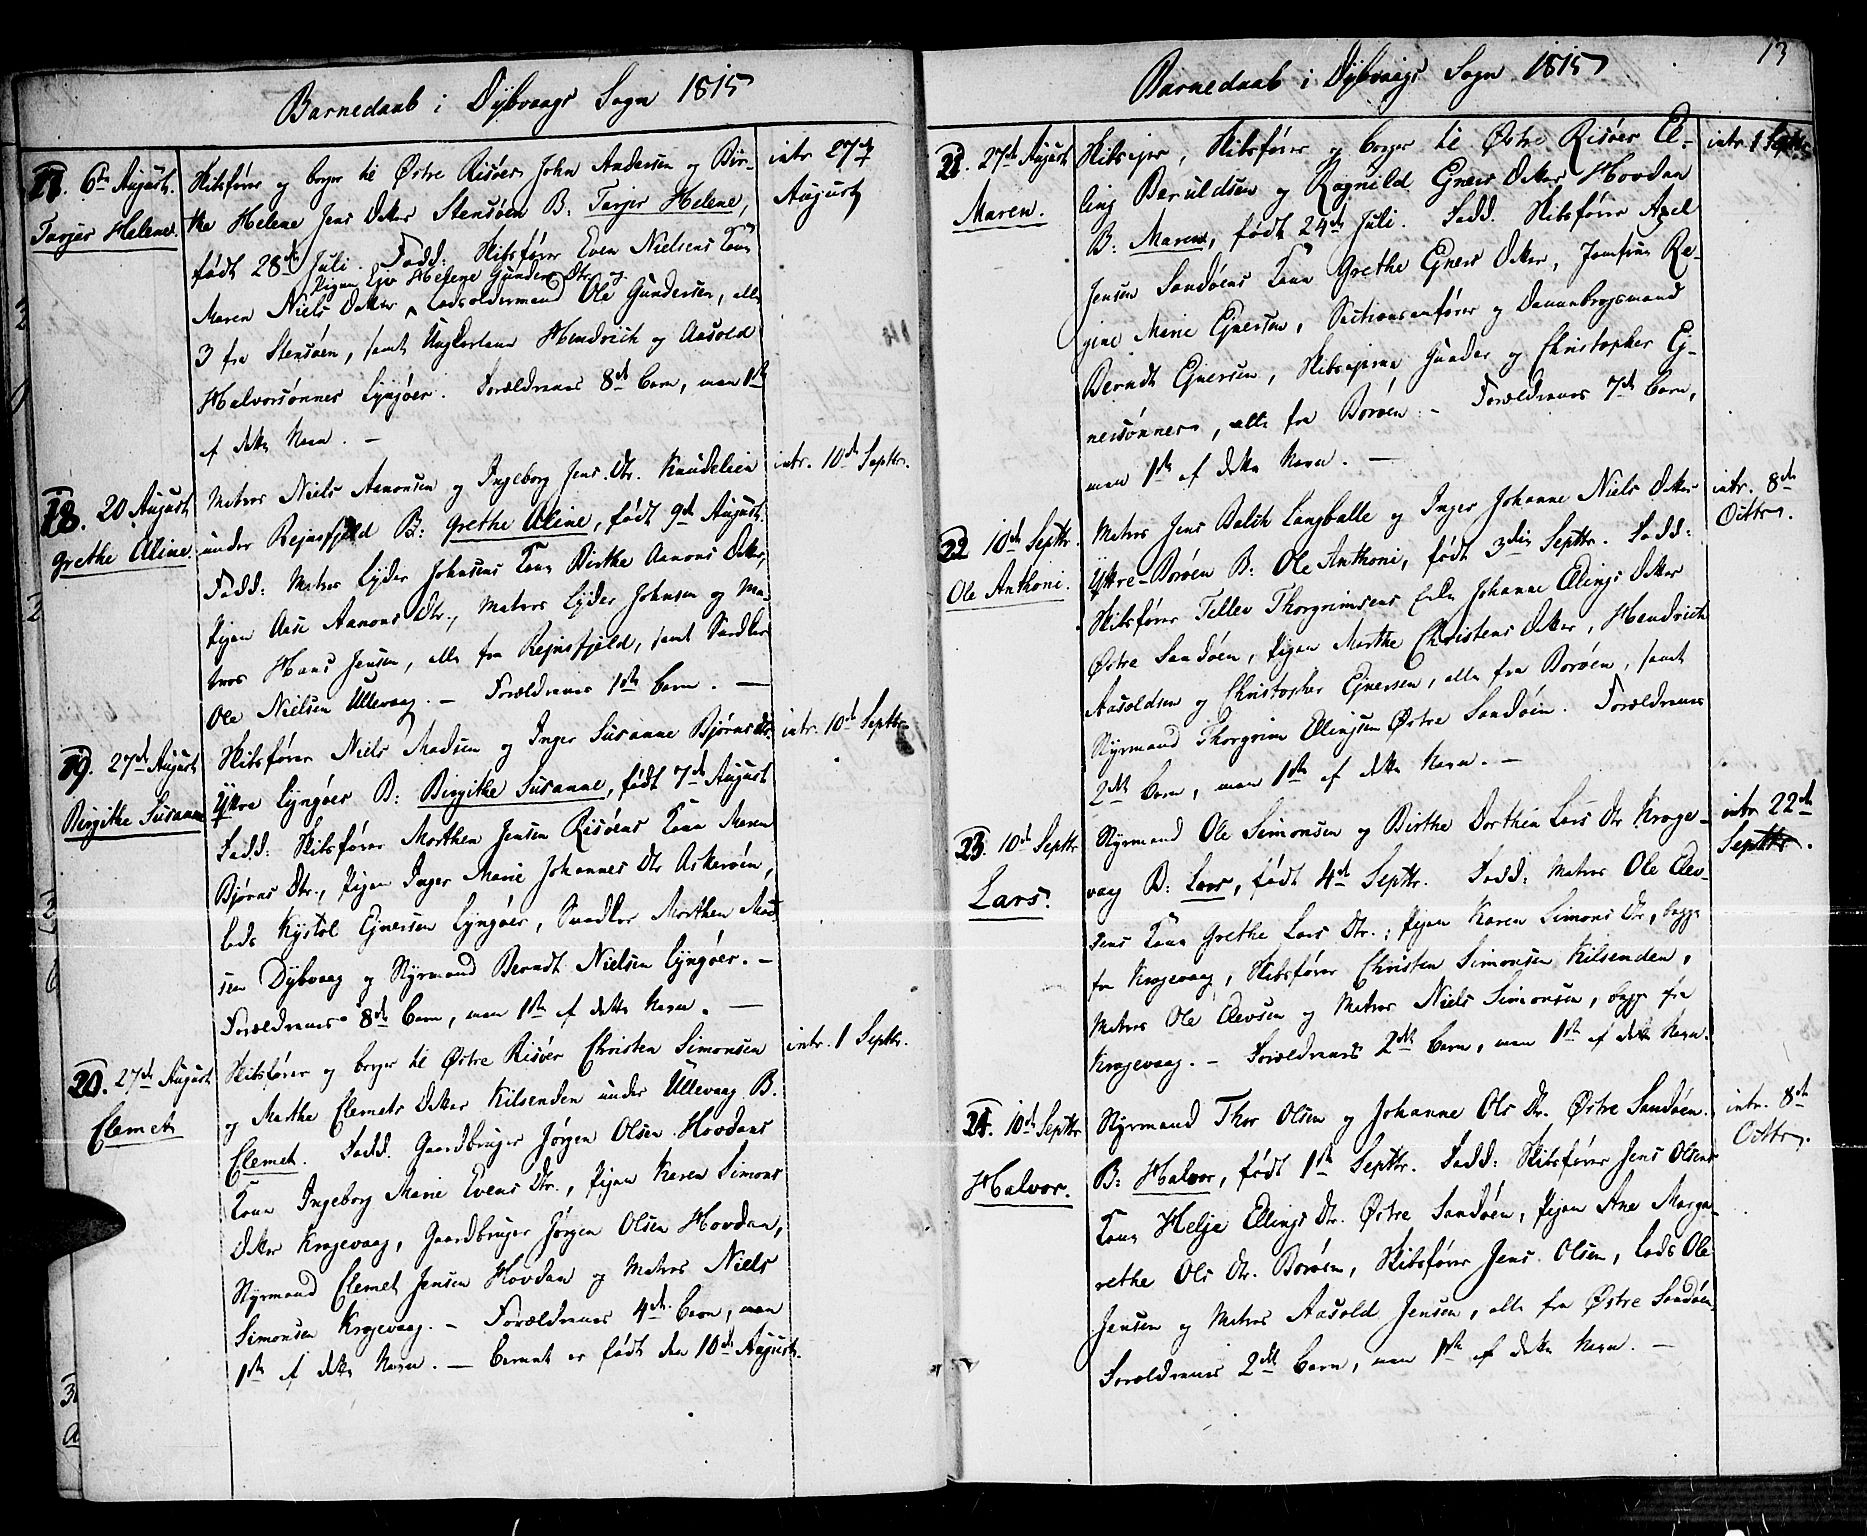 Barnedaab i Dybvaags Sogn 1815
17. 6te August.
Tarjer Helene.
Skibsfører og borger til Østre Risøer John Andersen og Bir-
the Helene Jens Datter Stensøen B: Tarjer Helene,
født 28de Juli. Fadd: Skibsfører Even Nielsens Kone
Pigen Helene Gunders Dtr og
Maren Niels Datter, Ladsoldermand Ole Gundersen, alle
3 fra Stensøen, samt Ungkarlene Hendrich og Aasold
Halvorsønner Lyngøer. Forældrenes 8de barn, men 1ste
af dette Navn. —
intr. 27de
August
18. 20 August
Grethe Aline.
Matros Niels Aanonsen og Ingeborg Jens Dtr. Knudeleien
under Rejnsfjeld B: Grethe Aline, født 9de August.
Fadd: Matros Lyder Johnsens Kone Birthe Aanons Datter,
Pigen Aase Aanons Dtr., Matros Lyder Johnsen og Ma-
tros Hans Jensen, alle fra Rejnsfjeld, samt Snedker
Ole Nielsen Ullevaag. — Forældrenes 1ste barn. —
intr. 10de Septbr.
19. 27de August
Birgithe Susanne
Skibsfører Niels Madsen og Inger Susanne Bjørns Dtr.
Yttre Lyngøer B: Birgithe Susanne, født 7de August
Fadd: Skibsfører Morthen Jensen Risøens Kone Maren
Bjørns Dtr., Pigen Inger Marie Johannes Dtr Askerøen,
Lods Kystol Ejnersen Lyngøer, Snedker Morthen Mad-
sen Dybvaag og Styrmand Berndt Nielsen Lyngøer. —
Forældrenes 8de barn, men 1ste af dette Navn. —
intr. 10de Septbr.
20. 27de August
Clemet
Skibsfører og borger til Østre Risøer Christen Simonsen
og Marthe Clemets Datter Kilsenden under Ullevaag B.
Clemet. Fadd. Gaardbruger Jørgen Olsen Hovdans
Kone Ingeborg Marie Evens Dtr., Pigen Karen Simons
Datter Krogevaag, Gaardbruger Jørgen Olsen Hovdan,
Styrmand Clemet Jensen Hovdan og Matros Niels
Simonsen Krogevaag. — Forældrenes 4de barn, men
1ste af dette Navn. — Barnet er født den 10de August.
intr. 1 Septbr.
13
Barnedaab i Dybvaags Sogn 1815
21. 27de August
Maren.
Skibsejer, Skibsfører og borger til Østre Risøer El-
ling Beruldsen og Ragnild Ejners Datter Hovdan
B: Maren, født 24de Juli. Fadd. Skibsfører Axel
Jensen Sandøens Kone Grethe Ejners Datter, Jomfrue Re-
gine Marie Ejnersen, Sectionsanfører og Dannebrogsmand
Berndt Ejnersen, Skibsejerne Gunder og Christopher Ej-
nersønner, alle fra Borøen. — Forældrenes 7de barn,
men 1ste af dette Navn. —
intr. 1 Septbr.
22 10de Septbr.
Ole Anthoni.
Matros Jens Balch Langballe og Inger Johanne Niels Datter
Yttre-Borøen B: Ole Anthoni, født 3die Septbr. Fadd:
Skibsfører Tellev Thorgrimsens Johanne Ellings Datter
Østre Sandøen, Pigen Marthe Christens Datter, Hendrich
Aasoldsen og Christopher Ejnersen, alle fra Borøen, samt
Styrmand Thorgrim Ellingsen Østre Sandøen. Forældrenes
2det barn, men 1ste af dette Navn. —
intr. 8de
Octbr.
23. 10de Septbr
Lars.
Styrmand Ole Simonsen og Birthe Dorthea Lars Dtr Kroge-
vaag B: Lars, født 4de Septbr. Fadd: Matros Ole Elev-
sens Kone Grethe Lars Dtr., Pigen Karen Simons Dtr, begge
fra Krogevaag, Skibsfører Christen Simonsen Kilsenden,
Matros Ole Elevsen og Matros Niels Simonsen, begge fra
Krogevaag. — Forældrenes 2det barn, men 1ste af dette Navn.
intr 22de
Septbr.
24. 10de Septbr
Halvor.
Styrmand Thor Olsen og Johanne Ols Dtr. Østre Sandøen.
B: Halvor, født 1ste Septbr. Fadd: Skibsfører Jens Olsens
Kone Helje Ellings Dtr. Østre Sandøen, Pigen Ane Marga-
rethe Ols Dtr. Borøen, Skibsfører Jens Olsen, Lods Ole
Jensen og Matros Aasold Jensen, alle fra Østre Sandøen.
Forældrenes 2det barn, men 1ste af dette Navn. —
intr. 8de
Octbr.